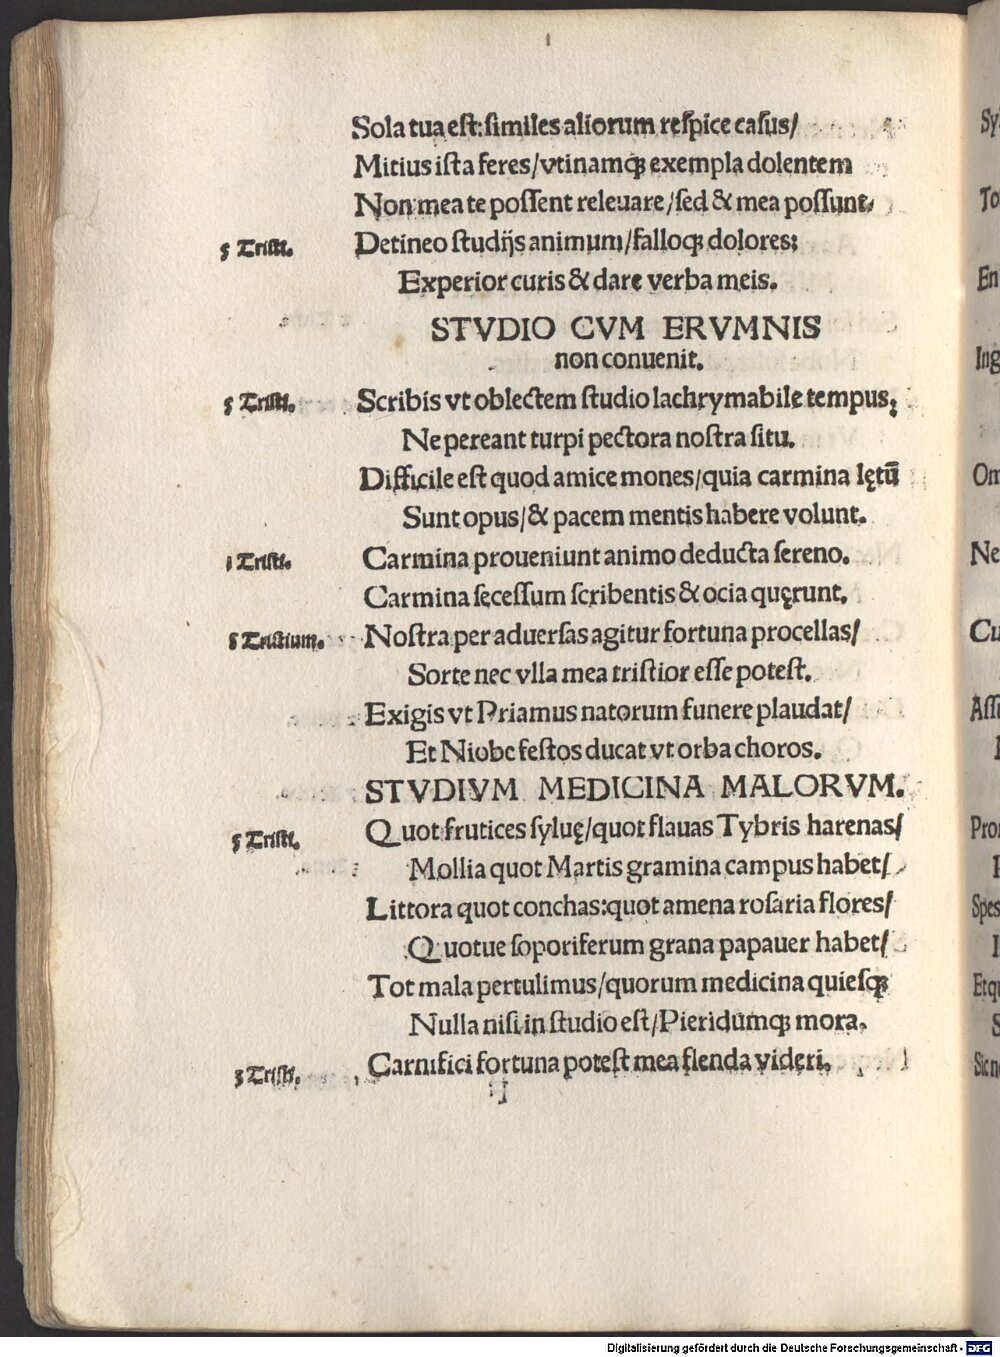 Sola tua est: similes aliorum respice casus/
Mitius ista feres/vtinamqꝫ exempla dolentem
Non mea te possent releuare/sed & mea possunt.
5 Tristi. Detineo studijs animum/falloqꝫ dolores:
Experior curis & dare verba meis.
STVDIO CVM ERVMNIS
non conuenit.
5 Tristi. Scribis vt oblectem studio lachrymabile tempus:
Ne pereant turpi pectora nostra situ.
Difficile est quod amice mones/quia carmina lętū
Sunt opus/& pacem mentis habere volunt.
1 Tristi. Carmina proueniunt animo deducta sereno.
Carmina secessum scribentis & ocia quęrunt.
5 Tristium. Nostra per aduersas agitur fortuna procellas/
Sorte nec vlla mea tristior esse potest.
Exigis vt Priamus natorum funere plaudat/
Et Niobe festos ducat vt orba choros.
STVDIVM MEDICINA MALORVM.
5 Tristi. Quot frutices syluę/quot flauas Tybris harenas/
Mollia quot Martis gramina campus habet/
Littora quot conchas: quot amena rosaria flores/
Quotue soporiferum grana papauer habet/
Tot mala pertulimus/quorum medicina quiesqꝫ
Nulla nisi in studio est/Pieridumqꝫ mora.
3 Tristi. Carnifici fortuna potest mea flenda videri.
Sy
To
En
Ing
Om
Ne
Cu
Assi
Pro
Spes
Etqu
S
Sic n
Digitalisierung gefördert durch die Deutsche Forschungsgemeinschaft - DFG